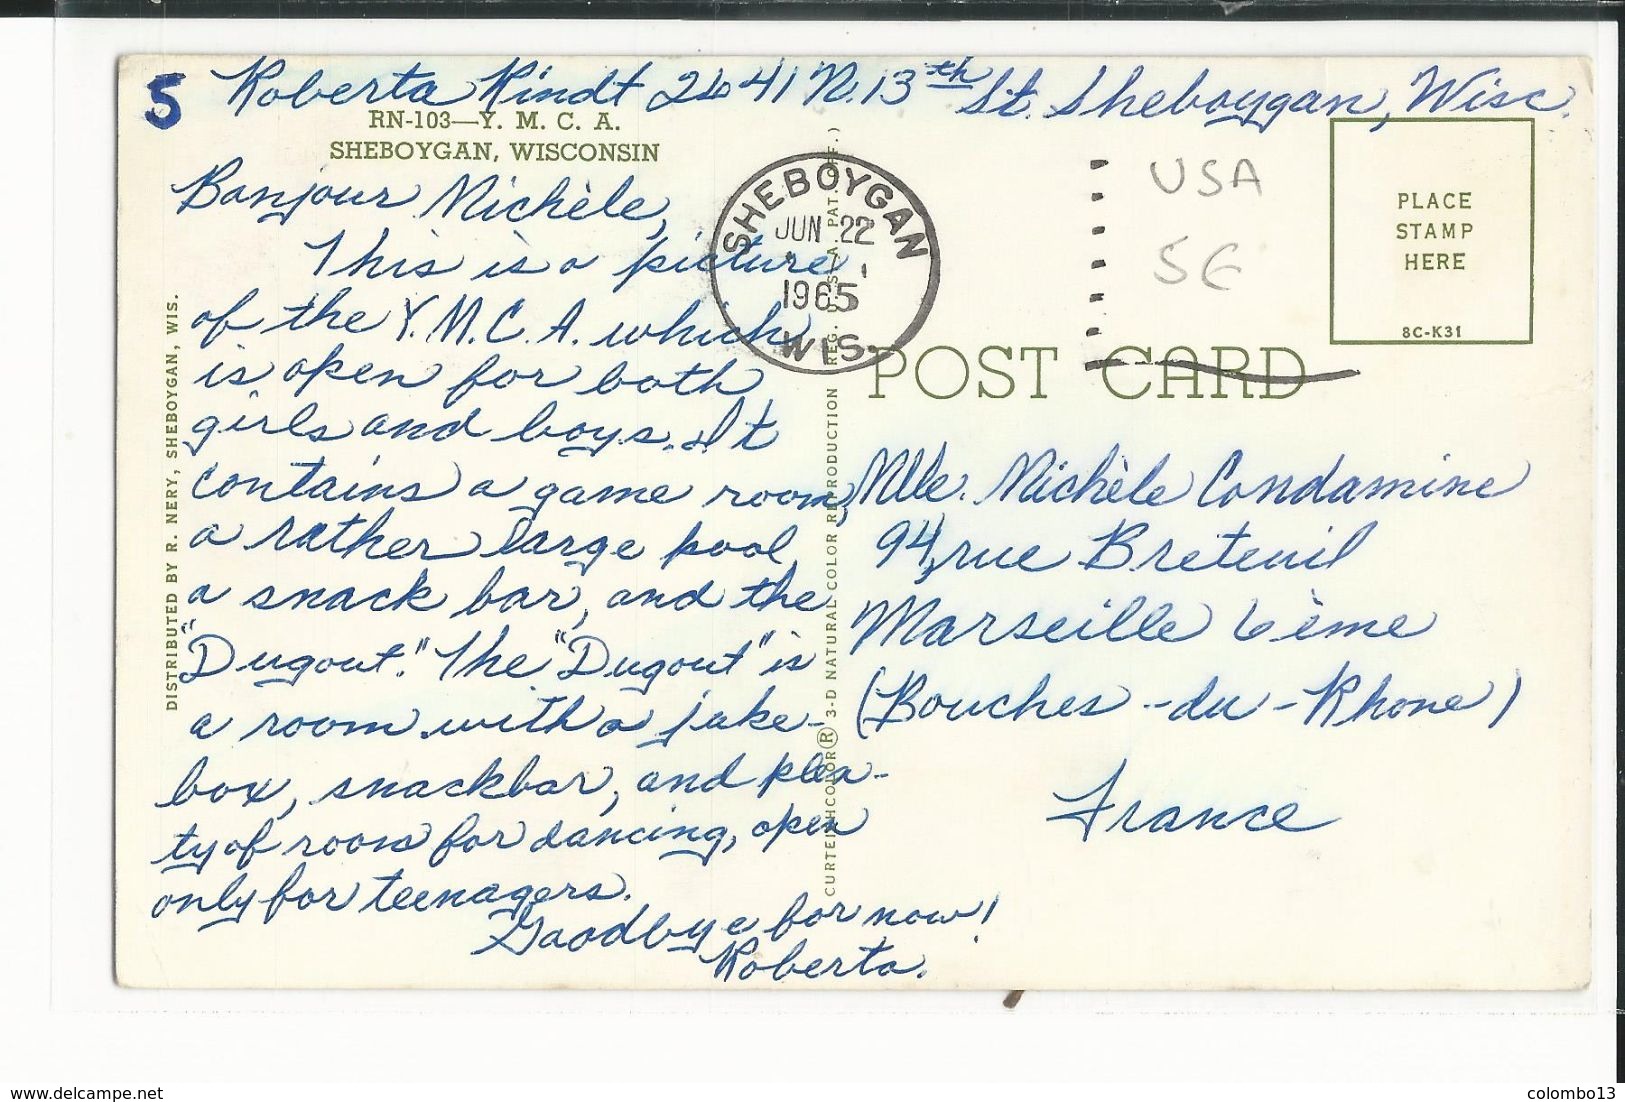 5 Roberta Kindt 2441 N. 13th St. Sheboygan, Wisc.
RN-103—Y. M. C. A.
SHEBOYGAN, WISCONSIN
Bonjour Michèle,
This is a picture
of the Y.M.C.A. which
is open for both
girls and boys. It
contains a game room,
a rather large pool
a snack bar, and the
"Dugout." The "Dugout" is
a room with a juke-
box, snackbar, and plen-
ty of room for dancing, open
only for teenagers.
Goodbye for now!
Roberta.
DISTRIBUTED BY R. NERY, SHEBOYGAN, WIS.
CURTEICHCOLOR ® 3-D NATURAL COLOR REPRODUCTION REG. U.S.A. PAT. OFF.)
SHEBOYGAN
JUN 22
1965
WIS.
USA
5€
PLACE
STAMP
HERE
8C-K31
POST CARD
Mlle. Michèle Condamine
94, rue Breteuil
Marseille 6ème
(Bouches-du-Rhone)
France
www.delcampe.net
colombo13